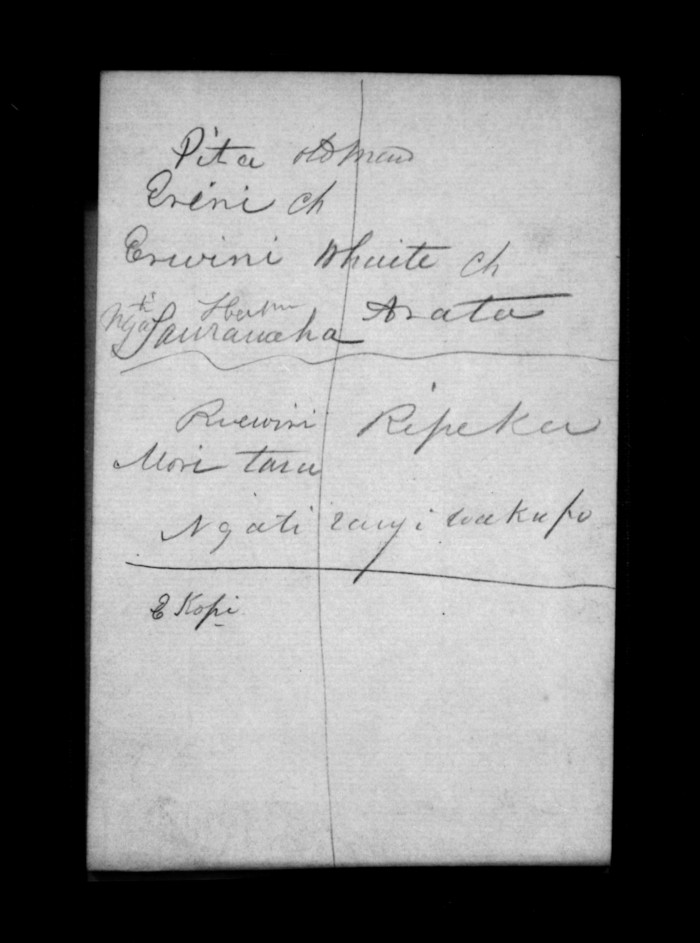 Pita old man
Ereni ch
Erwini Whaite ch
Ngati Taurawaha Arata
Ruewini Ripeka
Mori tara
Ngati rangi wakapo
E Kopi